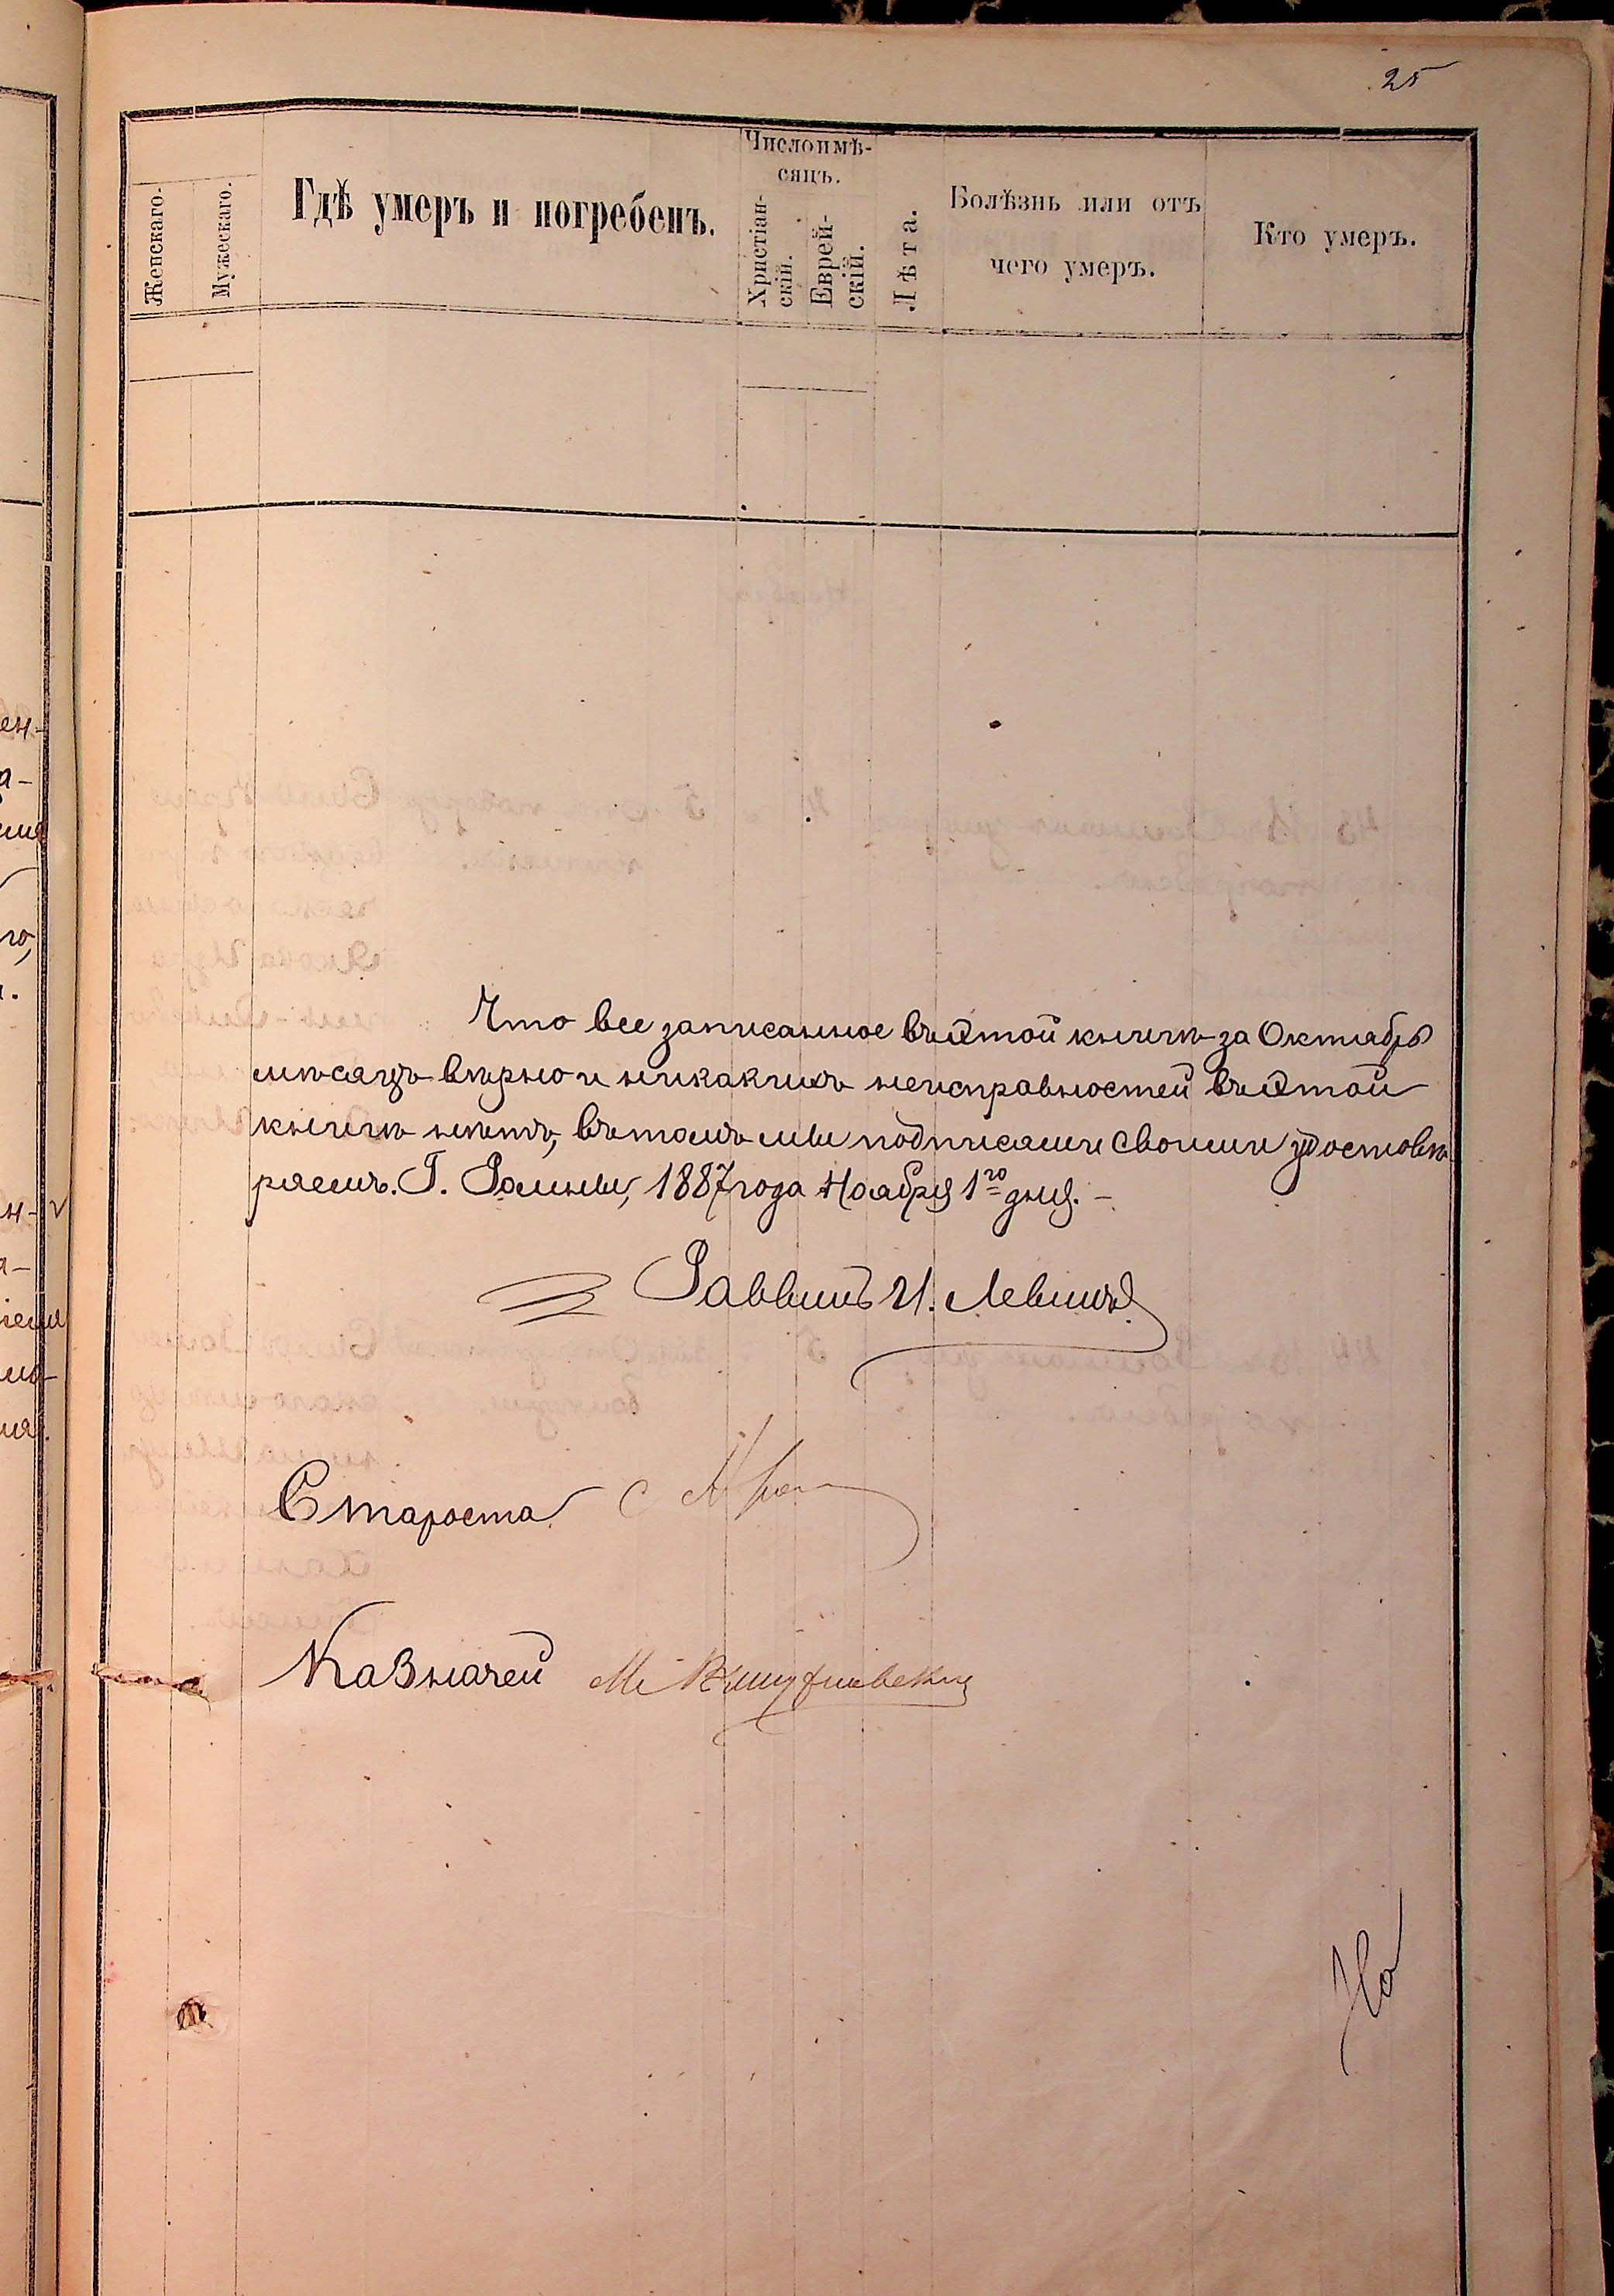 25
Числоимѣ-
сяцъ.
Женскаго.
Мужескаго.
Гдѣ умеръ и погребенъ.
Христіан-
скій.
Еврей-
скій.
Лѣта.
Болѣзнь или отъ
чего умеръ.
Кто умеръ.
Что все записанное въ этой книгѣ за Октябрь
мѣсяцъ вѣрно и никакихъ неисправностей въ этой
книгѣ нѣтъ, въ томъ мы подписами своими удостовѣ
ряемъ. Г. Ромны, 1887 года Ноября 1го дня. –
Раввинъ И. Левинъ
Староста
Казначей М
На